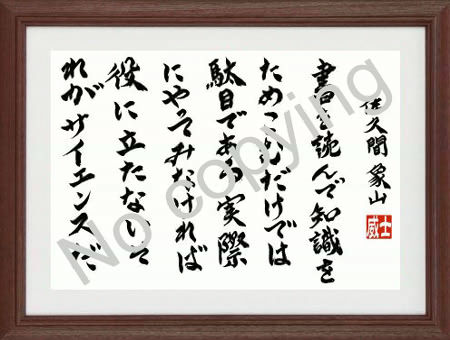 佐久間象山
書を読んで知識を
ためこむだけでは
駄目である実際
にやってみなければ
役に立たないそ
れがサイエンスだ
威士
No copying